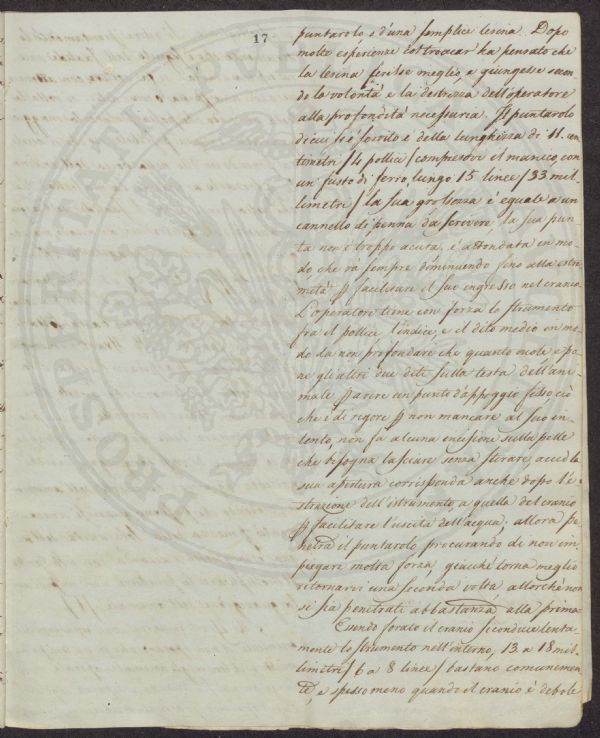 17
puntarolo e d'una semplice lesina. Dopo
molte esperienze ha pensato che
la lesina ferisse meglio, e giungesse secon-
do la volontà e la destrezza dell'operatore
alla profondità necessaria. Il puntarolo
di cui si è servito è della lunghezza di 11. cen-
timetri /4 pollici/ compresovi il manico, con
un fusto di ferro, lungo 15 linee /33 mil-
limetri/ la sua grossezza è eguale a un
cannello di penna da scrivere, la sua pun-
ta non è troppo acuta, è attondata in mo-
do che và sempre diminuendo sino alla estre-
mità p facilitare il suo ingresso nel cranio.
L'operatore tiene con forza lo strumento
fra il pollice l'indice, e il dito medio in mo-
do da non profondare che quanto vuole e po-
ne gli altri due diti sulla testa dell'ani-
male p avere un punto d'appoggio fisso ciò
che è di rigore p non mancare al suo in-
tento, non fa alcuna incisione sulla pelle
che bisogna lasciare senza stirare, acciò la
sua apertura corrisponda anche dopo l'e-
strazione dell'istrumento a quella del cranio
p facilitare l'uscita dell'acqua; allora pe-
netra il puntarolo procurando di non im-
piegare molta forza, giacchè torna meglio
ritornarvi una seconda volta allorchè non
si sia penetrati abbastanza alla prima.
Essendo forato il cranio si conduce lenta-
mente lo strumento nell'interno, 13 a 18 mil-
limetri /6 a 8 linee/ bastano comunemen-
te, e spesso meno quando il cranio è debole